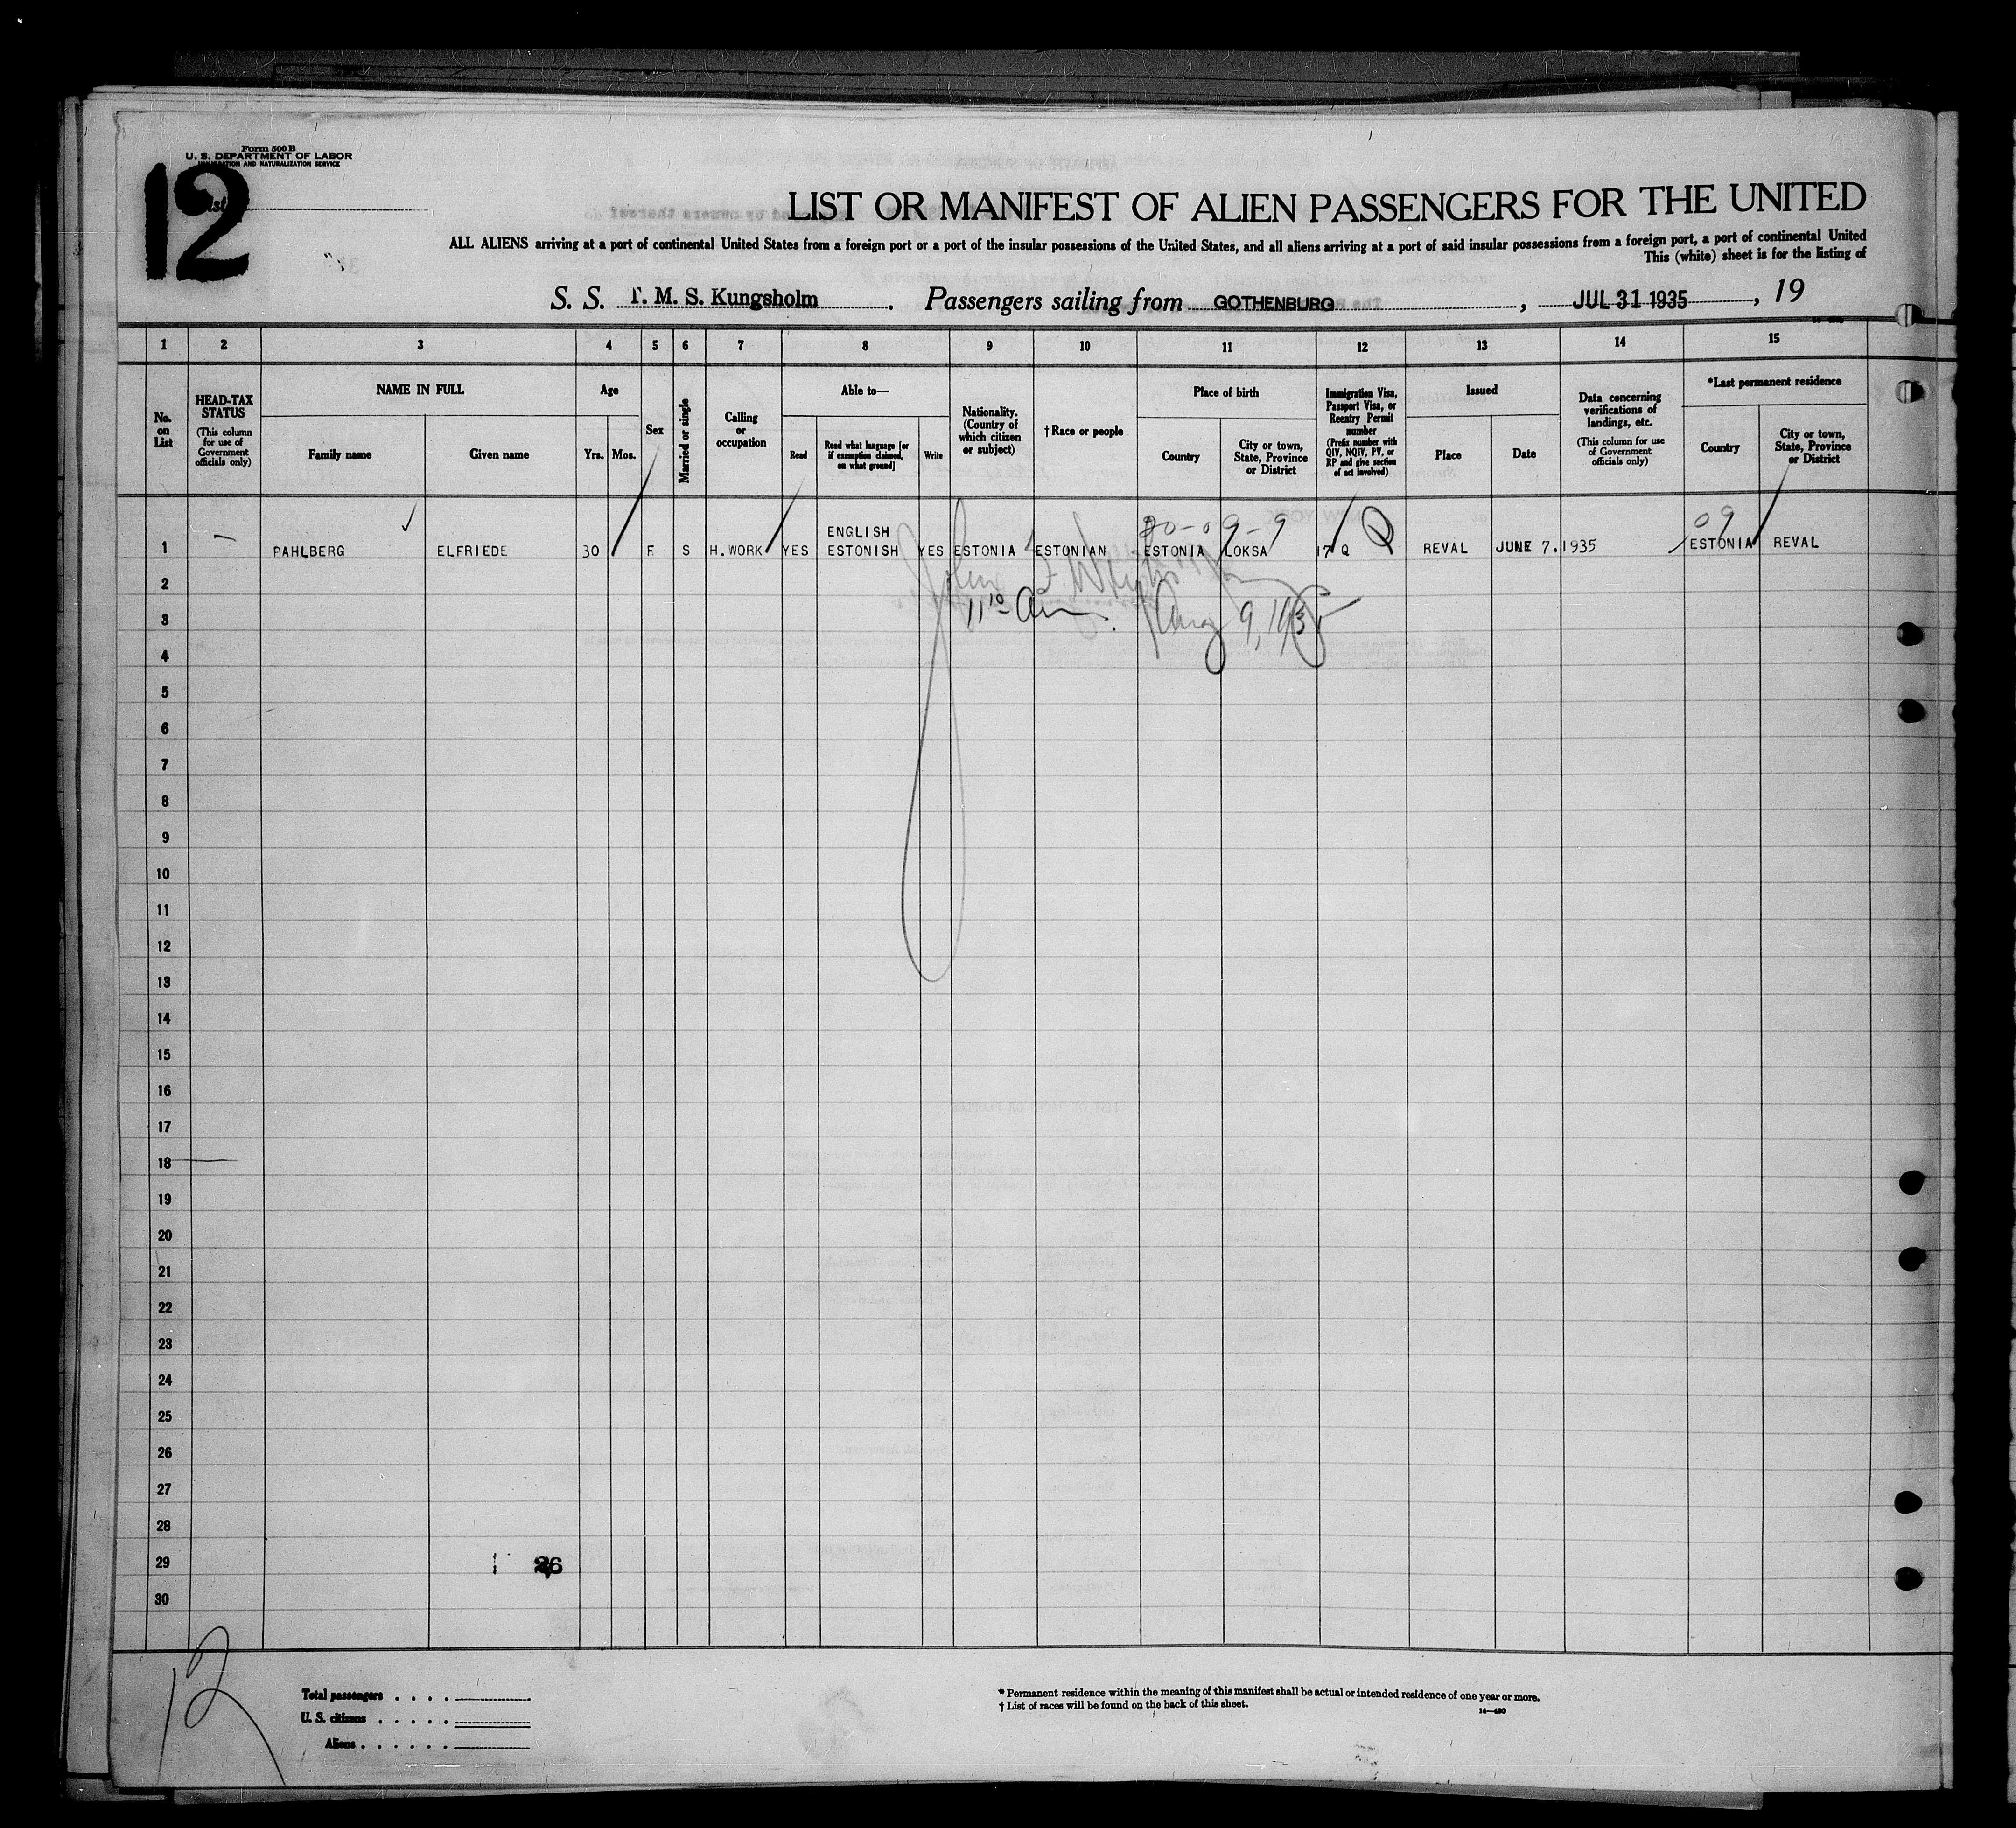 Form 500 B
U. S. DEPARTMENT OF LABOR
IMMIGRATION AND NATURALIZATION SERVICE
12
List
LIST OR MANIFEST OF ALIEN PASSENGERS FOR THE UNITED
ALL ALIENS arriving at a port of continental United States from a foreign port or a port of the insular possessions of the United States, and all aliens arriving at a port of said insular possessions from a foreign port, a port of continental United
This (white) sheet is for the listing of
S. S. T. M. S. Kungsholm. Passengers sailing from GOTHENBURG, JUL 31 1935, 19
1 2 3 4 5 6 7 8 9 10 11 12 13 14 15
No. on List
HEAD-TAX STATUS
(This column for use of Government officials only)
NAME IN FULL
Family name
Given name
Age
Yrs. Mos.
Sex
Married or single
Calling or occupation
Able to—
Read
Read what language [or if exemption claimed, on what ground]
Write
Nationality. (Country of which citizen or subject)
† Race or people
Place of birth
Country
City or town, State, Province or District
Immigration Visa, Passport Visa, or Reentry Permit number
(Prefix number with QIV, NQIV, PV, or RP and give section of act involved)
Issued
Place
Date
Data concerning verifications of landings, etc.
(This column for use of Government officials only)
*Last permanent residence
Country
City or town, State, Province or District
09-9
Q
09
ENGLISH
1 — PAHLBERG ELFRIEDE 30 F S H.WORK YES ESTONISH YES ESTONIA ESTONIAN ESTONIA LOKSA 17 Q REVAL JUNE 7, 1935 ESTONIA REVAL
2
John
3
11 10 am. Aug 9, 1935
4
5
6
7
8
9
10
11
12
13
14
15
16
17
18
19
20
21
22
23
24
25
26
27
28
29
30
12
Total passengers . . . .
U. S. citizens . . . . .
Aliens . . . . . .
* Permanent residence within the meaning of this manifest shall be actual or intended residence of one year or more.
† List of races will be found on the back of this sheet.
14—430